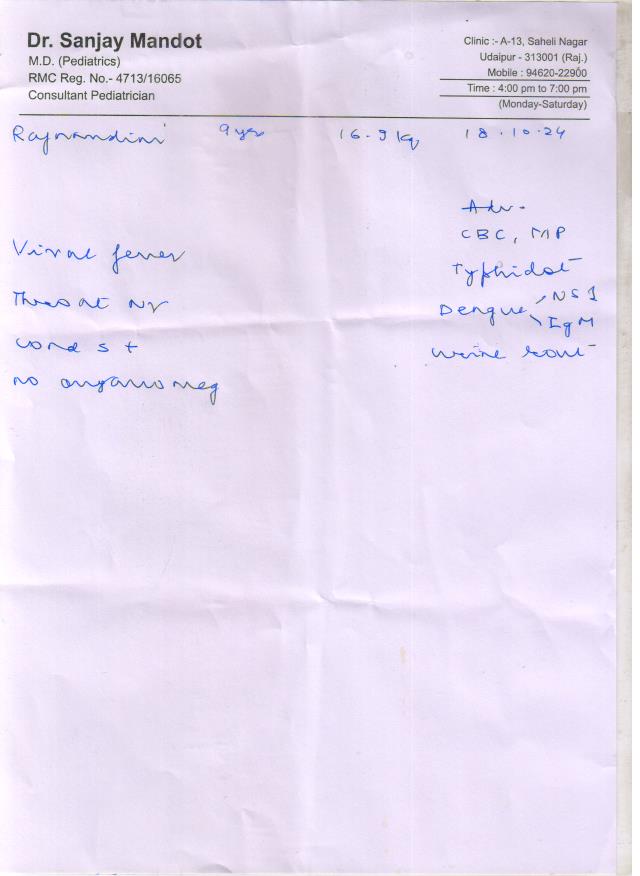 Dr. Sanjay Mandot
M.D. (Pediatrics)
RMC Reg. No.- 4713/16065
Consultant Pediatrician
Clinic :- A-13, Saheli Nagar
Udaipur - 313001 (Raj.)
Mobile : 94620-22900
Time : 4:00 pm to 7:00 pm
(Monday-Saturday)
Rajnandini 9 yrs 16.9 kg 18.10.24
Adv.
CBC, MP
Viral fever
Typhidot
Throat
Dengue NS1
IgM
S +
urine rout
no organomeg